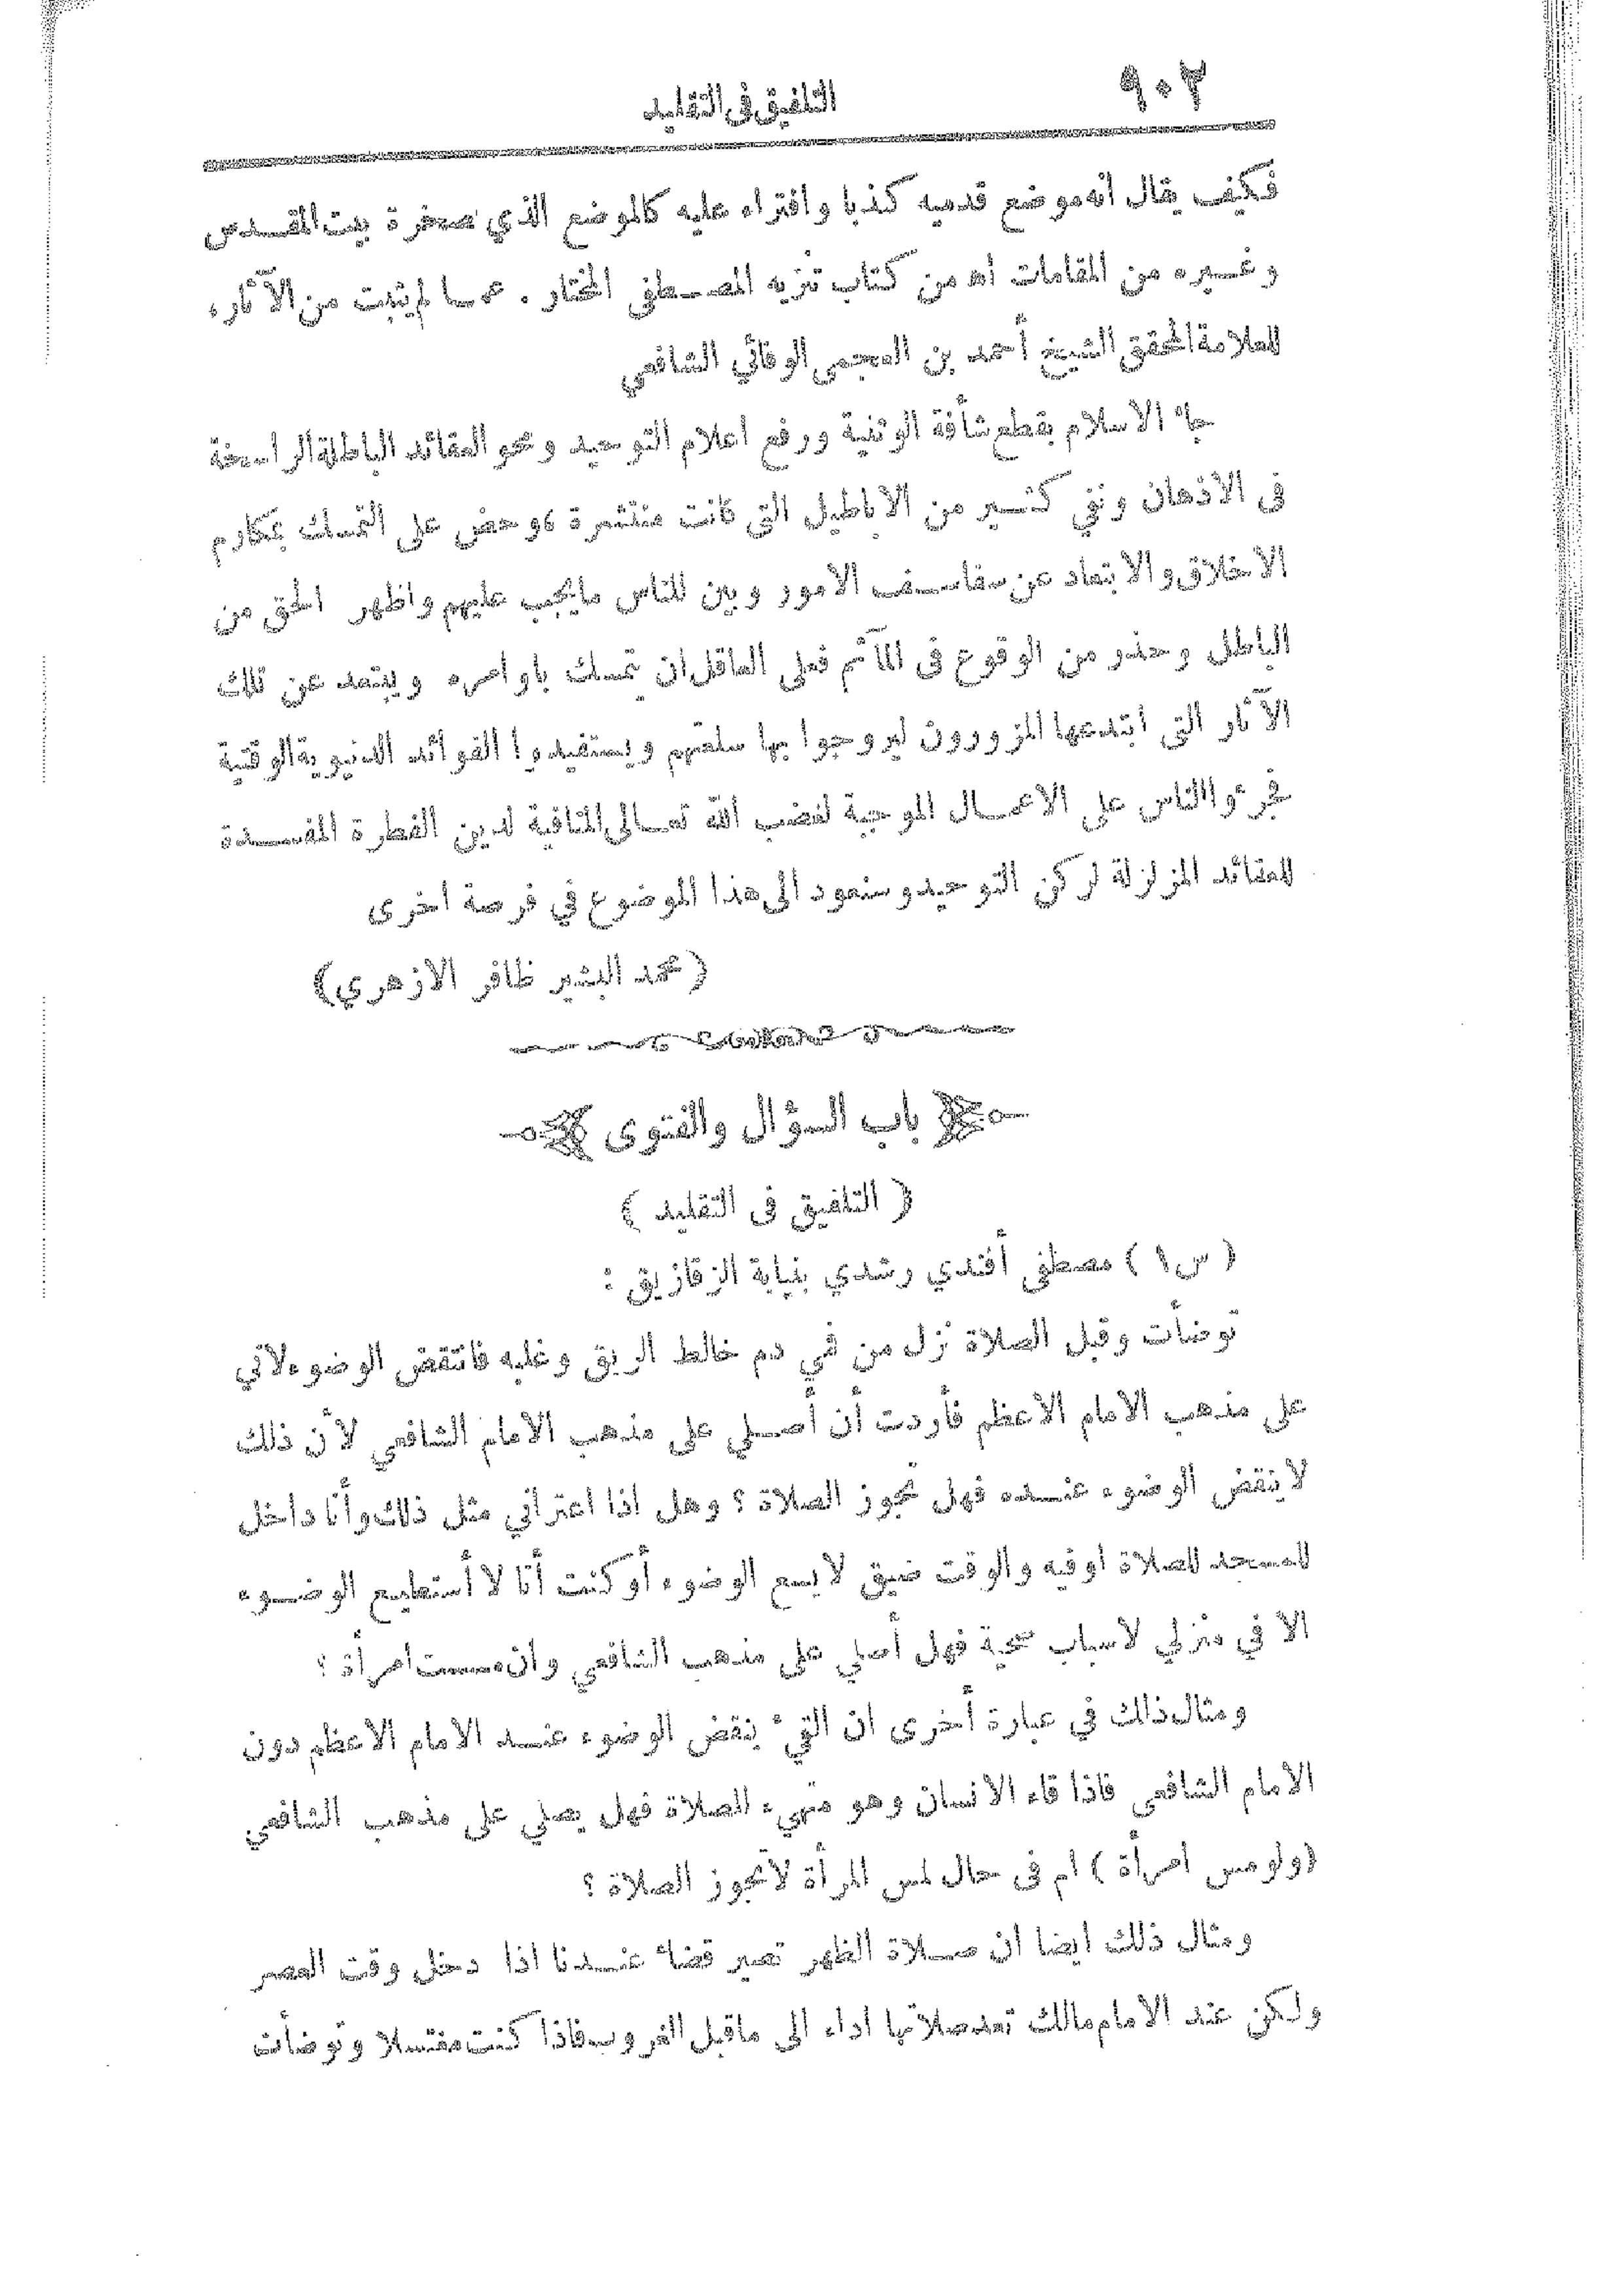 ٩٠٢
التلفيق فى التقليد
فكيف يقال انه موضع قدميه كذبا وافتراء عليه كالموضع الذي بصخرة بيت المقدس
وغيره من المقامات اه من كتاب تنزيه المصطفى المختار . عما لم يثبت من الآثار،
للعلامة المحقق الشيخ أحمد بن العجمى الوفائي الشافعي
جاء الاسلام بقطع شأفة الوثنية ورفع اعلام التوحيد ومحو العقائد الباطلة الراسخة
فى الاذهان ونفي كثير من الاباطيل التى كانت منتشرة ، وحض على التمسك بمكارم
الاخلاق والابتعاد عن سفاسف الامور وبين للناس مايجب عليهم واظهر الحق من
الباطل وحذر من الوقوع فى المآثم فعلى العاقل ان يتمسك باوامره ويبتعد عن تلك
الآثار التى ابتدعها المزورون ليروجوا بها سلعتهم ويستفيدوا الفوائد الدنيوية الوقتية
فجرءوا الناس على الاعمال الموجبة لغضب الله تعالى المنافية لدين الفطرة المفسدة
للعقائد المزلزلة لركن التوحيد وسنعود الى هذا الموضوع في فرصة اخرى
(محمد البشير ظافر الازهري)
باب السؤال والفتوى
( التلفيق فى التقليد )
( س١ ) مصطفى أفندي رشدي بنيابة الزقازيق :
توضأت وقبل الصلاة نزل من في دم خالط الريق وغلبه فانتقض الوضوء لاني
على مذهب الامام الاعظم فأردت أن أصلي على مذهب الامام الشافعي لأن ذلك
لا ينقض الوضوء عنده فهل تجوز الصلاة ؟ وهل اذا اعتراني مثل ذلك وأنا داخل
المسجد للصلاة اوفيه والوقت ضيق لايسع الوضوء أو كنت أنا لا أستطيع الوضوء
الا في منزلي لاسباب صحية فهل أصلي على مذهب الشافعي وان مسست امرأة ؟
ومثال ذلك في عبارة أخرى ان القيء ينقض الوضوء عند الامام الاعظم دون
الامام الشافعى فاذا قاء الانسان وهو متهيء للصلاة فهل يصلي على مذهب الشافعي
(ولو مس امرأة ) ام فى حال لمس المرأة لا تجوز الصلاة ؟
ومثال ذلك ايضا ان صلاة الظهر تصير قضاء عندنا اذا دخل وقت العصر
ولكن عند الامام مالك تعد صلاتها اداء الى ماقبل الغروب فاذا كنت مغتسلا وتوضأت